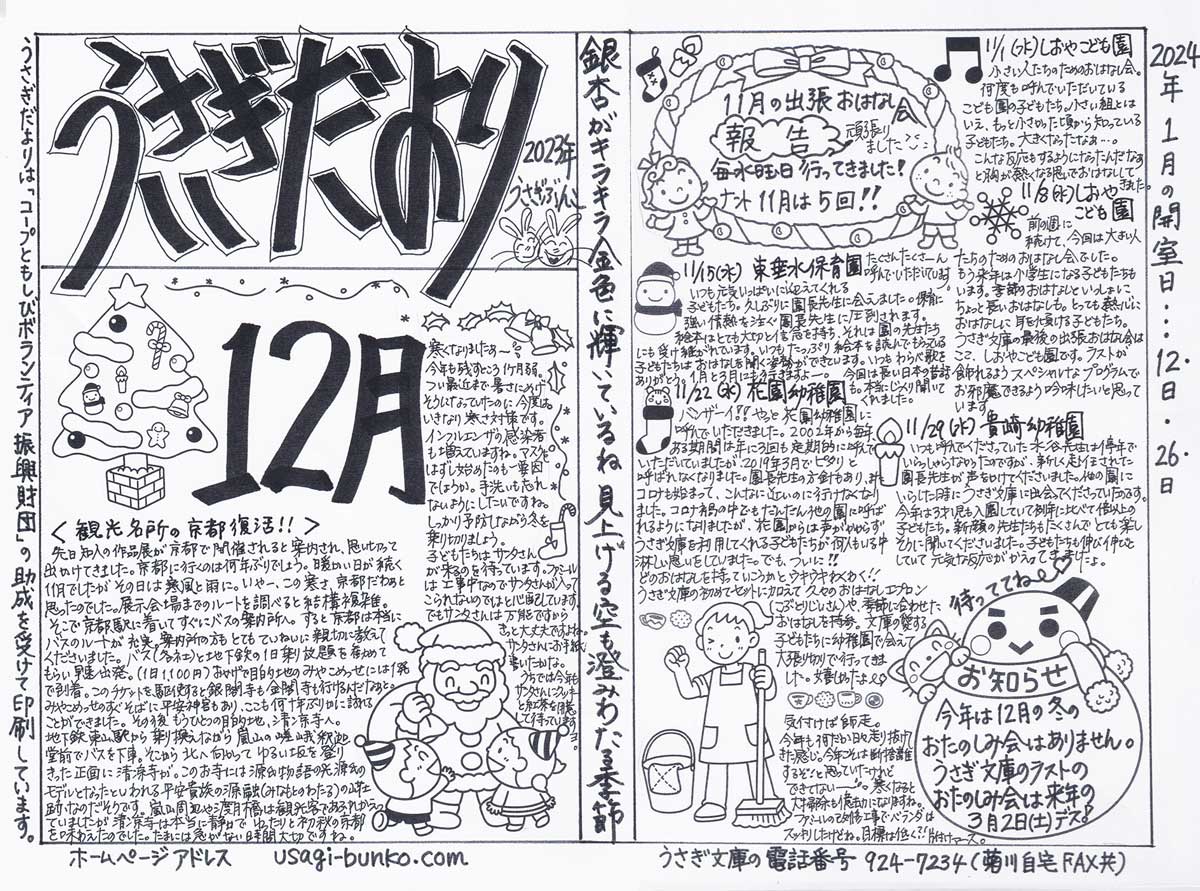 うさぎだより
2023年
うさぎぶんこ
12月
うさぎだよりは「コープともしびボランティア振興財団」の助成を受けて印刷しています。
寒くなりましたぁ~
今年も残すところ1ケ月弱。
つい最近まで暑さにめげ
そうになっていたのに今度は
いきなり寒さ対策です。
インフルエンザの感染者
も増えていますね。マスクを
はずし始めたのも一要因
でしょうか。手洗いも忘れ
ないようにしたいですね。
しっかり予防しながら冬を
乗り切りましょう。
子どもたちはサンタさん
が来るのを待っています。
は工事中なのでサンタさんが入って
こられないのではと心配しています。
でもサンタさんは万能ですから
きっと大丈夫ですよね。
サンタさんにお手紙
書いたかな。
うちでは今年も
サンタさんにクッキー
と紅茶を
待っています
<観光名所の京都復活!!>
先日知人の作品展が京都で開催されると案内され、思い切って
出かけてきました。京都に行くのは何年ぶりでしょう。暖かい日が続く
11月でしたが その日は寒風と雨に。いやー、この寒さ、京都だわぁと
思ったのでした。展示会場までのルートを調べると結構複雑。
そこで京都駅に着いてすぐにバスの案内所へ。すると京都は本当に
バスのルートが充実。案内所の方もとてもていねいに親切に教えて
くださいました。バス(多分市バス)と地下鉄の1日乗り放題を薦めて
もらい早速出発。(1日1,100円)おかげで目的地のみやこめっせには1発
で到着。このチケットを駆使すると銀閣寺も金閣寺も行けるんだなあと。
みやこめっせのすぐそばに平安神宮もあり、ここも何十年ぶりかに訪れる
ことができました。その後もうひとつの目的地、清凉寺へ。
地下鉄東山駅から乗り換えながら嵐山の嵯峨釈迦
堂前でバスを下車。そこから北へ向かってゆるい坂を登り
きった正面に清凉寺が。このお寺には源氏物語の光源氏の
モデルとなったといわれる平安貴族の源融(みなもとのとおる)の山荘
跡なのだそうです。嵐山周辺や渡月橋は観光客であふれかえっ
ていましたが清凉寺は本当に静かでゆったりと初秋の京都
を味わえたのでした。たまには急がない時間大切ですね。
ホームページアドレス usagi-bunko.com
銀杏がキラキラ金色に輝いているね 見上げる空も澄みわたる季節
11月の出張おはなし会
報告
頑張り
ました
毎水曜日行ってきました!
ナント11月は5回!!
11/1(水)しおやこども園
小さい人たちのためのおはなし会。
何度も呼んでいただいている
こども園の子どもたち。小さい組とは
いえ、もっと小さかった頃から知っている
子どもたち。大きくなったなぁ…。
こんな反応もするようになったんだなぁ
と胸が熱くなる思いでおはなしして
きました。
11/8(水)しおや
こども園
前の週に
続けて、今回は大きい人
たちのためのおはなし会でした。
もう来年は小学生になる子どもたちも
います。季節のおはなしといっしょに
ちょっと長いおはなしも。とっても熱心に
おはなしに耳を傾ける子どもたち。
うさぎ文庫の最後の出張おはなし会は
ここ、しおやこども園です。ラストが
飾れるようスペシャルなプログラムで
お邪魔できるよう吟味したいと思って
います
11/15(水) 東垂水保育園
たくさんたくさーん
呼んでいただいています。
いつも元気いっぱいに迎えてくれる
子どもたち。久しぶりに園長先生に会えました。保育に
強い情熱を注ぐ園長先生に圧倒されます。
絵本はとても大切と信念を持ち、それは園の先生たち
にも受け継がれています。いつもたっぷり絵本を読んでもらってる
子どもたちはおはなしを聞く姿勢ができています。いつもわらべ歌を
ありがとう。1月と3月にも行きますよー
今回は長い日本の昔話
も。本当にじっくり聞いて
くれました。
11/22(水) 花園幼稚園
バンザーイ!!やっと花園幼稚園に
呼んでいただきました。2002年から毎年
ある期間は年に3回も定期的に呼んで
いただいていましたが、2019年3月でピタリと
呼ばれなくなりました。園長先生の方針もあり、また
コロナも始まって、こんなに近いのに行けなくなり
ました。コロナ禍の中でもだんだん他の園に呼ば
れるようになりましたが、花園からは声がかからず
うさぎ文庫を利用してくれる子どもたちが何人もいる中
淋しい思いをしていました。でも、ついに!!
どのおはなしを持っていこうかとウキウキわくわく!!
うさぎ文庫の初めてセットに加えて久々のおはなしエプロン
(こぶとりじいさん)や、季節に合わせた
おはなしを持参。文庫の愛する
子どもたちに幼稚園で会えて
大張り切りで行ってきま
した。嬉しかったよぉ
11/29(水) 貴崎幼稚園
いつも呼んでくださっていた水谷先生は1停年で
いらっしゃらなかったのですが、新しく赴任された
園長先生が声をかけてくださいました。他の園に
いらした時にうさぎ文庫に出会ってくださっていたのです。
今年は3才児も入園していて例年に比べて倍以上の
子どもたち。新顔の先生たちもたくさんでとても楽し
そうに聞いてくださいました。子どもたちも伸び伸びと
していて元気な反応がかえってきましたよ。
気付けば師走。
今年も何だか日々走り抜け
た感じ。今年こそは断捨離
するぞーと思っていたけれど
できてない…寒くなると
大掃除も億劫になりますね。
ベランダは
スッキリしたけどね。目標は低く!!片付けマース。
待っててね
お知らせ
今年は12月の冬の
おたのしみ会はありません。
うさぎ文庫のラストの
おたのしみ会は来年の
3月2日(土)デス!
2024年1月の開室日…12日・26日
うさぎ文庫の電話番号 924-7234(菊川自宅FAX共)